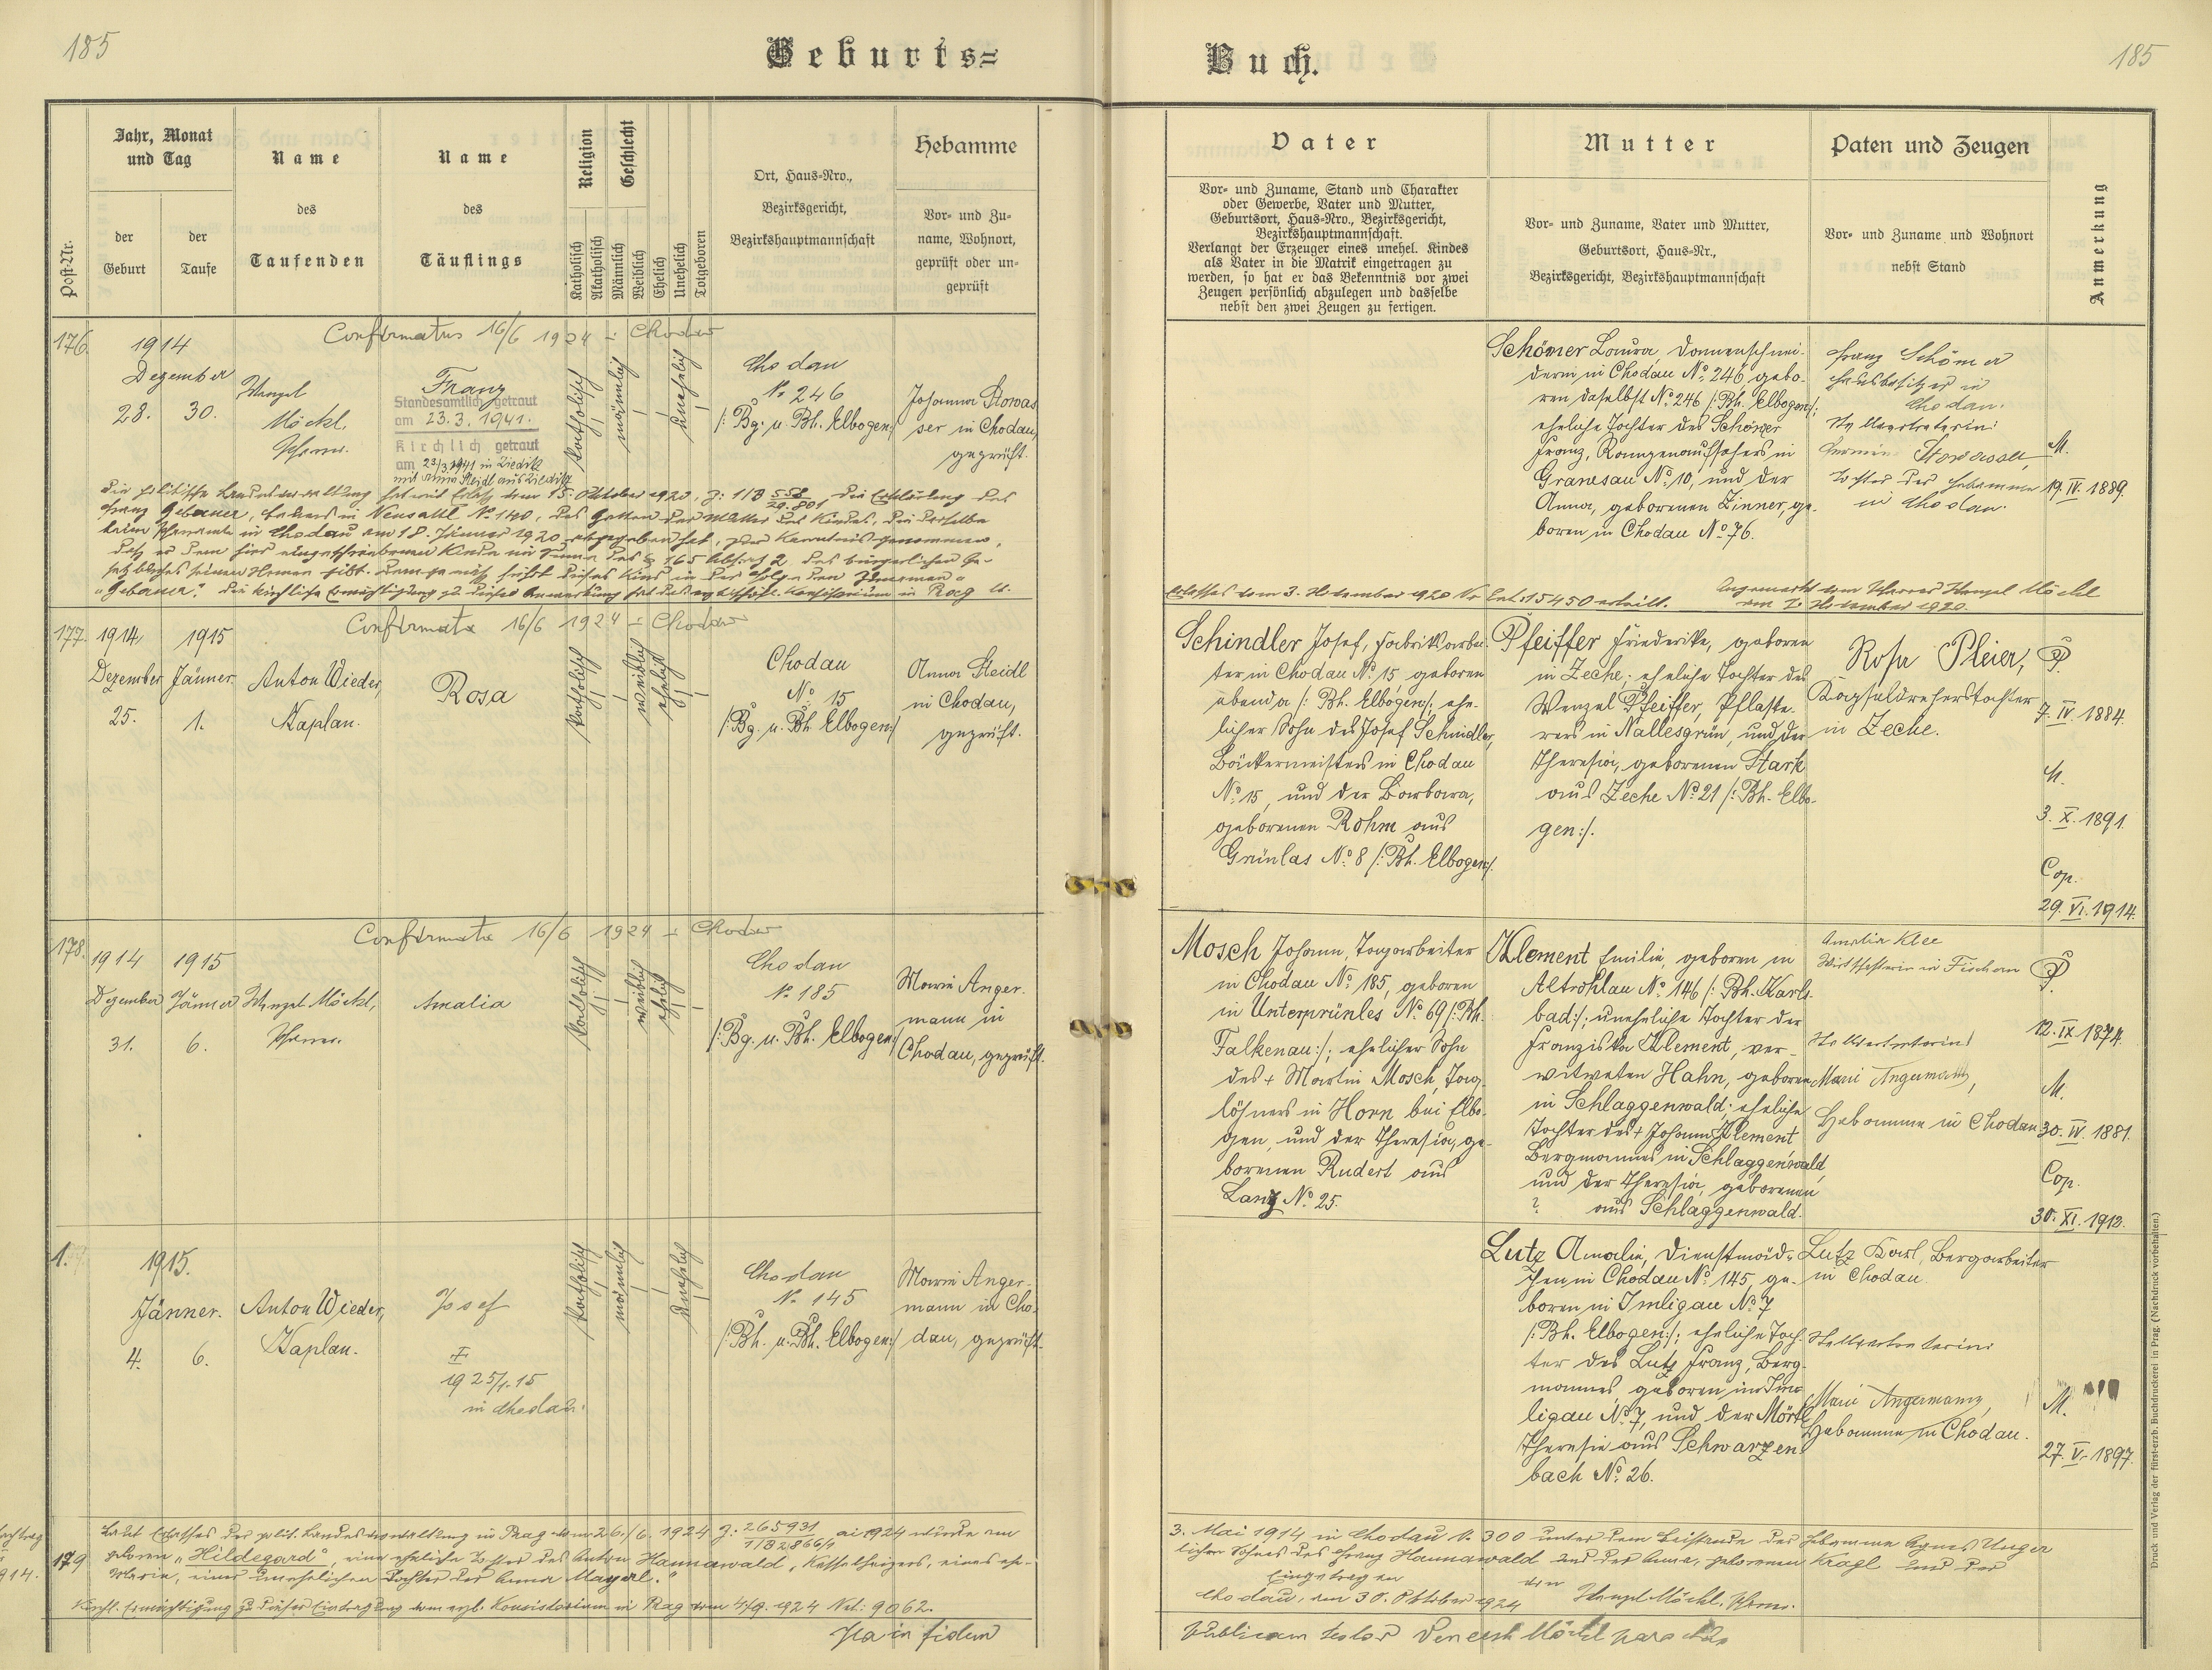 185
Geburts=
Buch.
185
Post-Nr.
Jahr, Monat
und Tag
der
Geburt
der
Taufe
Name
des
Taufenden
Name
des
Täuflings
Religion
Katholisch
Akatholisch
Geschlecht
Männlich
Weiblich
Ehelich
Unehelich
Totgeboren
Ort, Haus-Nro.,
Bezirksgericht,
Bezirkshauptmannschaft
Hebamme
Vor- und Zu-
name, Wohnort,
geprüft oder un-
geprüft
Vater
Vor- und Zuname, Stand und Charakter
oder Gewerbe, Vater und Mutter,
Geburtsort, Haus-Nro., Bezirksgericht,
Bezirkshauptmannschaft.
Verlangt der Erzeuger eines unehel. Kindes
als Vater in die Matrik eingetragen zu
werden, so hat er das Bekenntnis vor zwei
Zeugen persönlich abzulegen und dasselbe
nebst den zwei Zeugen zu fertigen.
Mutter
Vor- und Zuname, Vater und Mutter,
Geburtsort, Haus-Nr.,
Bezirksgericht, Bezirkshauptmannschaft
Paten und Zeugen
Vor- und Zuname und Wohnort
nebst Stand
Anmerkung
Confirmatus 16/6 1924 Chodau
176.
1914
Dezember
28. 30.
Wenzel
Möckl,
Pfarrer.
Franz
Standesamtlich getraut
am 23.3.1941.
Kirchlich getraut
am 23/3.1941 in Zieditz
katholisch
männlich
unehelich
Chodau
No 246
/: Bg. u. Bh. Elbogen:/
Johanna Stowas
ser in Chodau,
geprüft.
Schömer Laura, Damenschnei-
derin in Chodau No 246, gebo-
ren daselbst No 246 /: Bh. Elbogen:/;
eheliche Tochter des Schömer
Franz, in
Granesau No 10, und der
Anna, geborenen Zinner, ge-
boren in Chodau No 76.
Franz Schömer
Hausbesitzer in
Chodau.
Stellvertreterin:
Hermine Stowasser,
Tochter der Hebamme
in Chodau.
M.
19. IV. 1889.
Die politische Landesverwaltung hat mit Erlaß vom 15. Oktober 1920, die Erklärung des
Franz Gebauer, in Neusattl No 140, des Gatten der Mutter des Kindes, die derselbe
beim Pfarramte in Chodau am 18. Jänner 1920 abgegeben hat, zur Kenntnis genommen,
daß er dem hier eingeschriebenen Kinde im Sinne des § 165 Absatz 2 des bürgerlichen Ge-
setzbuches seinen Namen gibt. Demgemäß führt dieses Kind in der Folge den Zunamen
"Gebauer". Die kirchliche Ermächtigung zu dieser Anmerkung hat das erzbischöfl. Konsistorium in Prag lt.
Erlasses vom 3. November 1920 No 15450 erteilt.
Angemerkt vom Pfarrer Wenzel Möckl
November 1920.
Confirmata 16/6 1924 Chodau
177.
1914 1915
Dezember Jänner
25. 1.
Anton Wieder,
Kaplan.
Rosa
katholisch
weiblich
ehelich
Chodau
No 15
/: Bg. u. Bh. Elbogen:/
Anna Steidl
in Chodau,
geprüft.
Schindler Josef, Fabriksarbei-
ter in Chodau No 15, geboren
ebenda /: Bh. Elbogen:/; ehe-
licher Sohn des Josef Schindler,
Bäckermeisters in Chodau
No 15, und der Barbara,
geborenen Rohm aus
Grünlas No 8 /: Bh. Elbogen:/.
Pfeiffer Friederike, geboren
in Zeche; eheliche Tochter des
Wenzel Pfeiffer, Pflaste-
rers in Nallesgrün, und der
Theresia, geborenen Stark
aus Zeche No 21 /: Bh. Elbo-
gen:/.
Rosa Pleier,
Kapseldreherstochter
in Zeche.
P.
7. IV. 1884.
M.
3. X. 1891.
Cop.
29. VI. 1914.
Confirmata 16/6 1924 Chodau
178.
1914 1915
Dezember Jänner
31. 6.
Wenzel Möckl,
Pfarrer.
Amalia
katholisch
weiblich
ehelich
Chodau
No 185
/: Bg. u. Bh. Elbogen:/
Marie Anger-
mann in
Chodau, geprüft.
Mosch Johann, Tagarbeiter
in Chodau No 185, geboren
in Unterprünles No 69 /: Bh.
Falkenau:/; ehelicher Sohn
des + Martin Mosch, Tag-
löhners in Horn bei Elbo-
gen, und der Theresia, ge-
borenen Rudert aus
Lanz No 25.
Klement Emilie, geboren in
Altrohlau No 146 /: Bh. Karls-
bad:/; uneheliche Tochter der
Franziska Klement, ver-
witweten Hahn, geboren
in Schlaggenwald; eheliche
Tochter des + Johann Klement
Bergmannes in Schlaggenwald,
und der Theresia, geborenen
? aus Schlaggenwald.
Amalia Klee
Wirtschafterin in Fischern
Stellvertreterin:
Marie Angermann,
Hebamme in Chodau
P.
12. IX. 1874.
M.
30. IV. 1881.
Cop.
30. XI. 1912.
1.
1915.
Jänner.
4. 6.
Anton Wieder,
Kaplan.
Josef
19 25/1. 15
in Chodau.
katholisch
männlich
unehelich
Chodau
No 145
/: Bh. u. Bh. Elbogen:/
Marie Anger-
mann in Cho-
dau, geprüft.
Lutz Amalie, Dienstmäd-
chen in Chodau No 145, ge-
boren in Imligau No 7
/: Bh. Elbogen:/; eheliche Toch-
ter des Lutz Franz, Berg-
mannes, geboren in Im-
ligau No 7, und der Mörtl
Theresie aus Schwarzen-
bach No 26.
Lutz Karl, Bergarbeiter
in Chodau
Stellvertreterin:
Marie Angermann,
Hebamme in Chodau.
M.
27. V. 1897.
179
Laut Erlasses der polit. Landesverwaltung in Prag vom 26./6. 1924 Z: 265931 ai 1924 wurde am
3. Mai 1914 in Chodau No 300 unter dem Beistande der Hebamme Agnes Unger
geboren "Hildegard", eine eheliche Tochter des Anton Hannawald, Kesselheizers, eines ehe-
lichen Sohnes des Franz Hannawald und der Anna, geborenen Kragl und der
Marie, einer unehelichen Tochter der Anna Mayerl."
Eingetragen
Kirchl. Ermächtigung zu dieser Eintragung vom erzb. Konsistorium in Prag vom 4./9. 1924 No: 9062.
Chodau, am 30. Oktober 1924
Wenzel Möckl, Pfarrer.
Ita in fidem
publicam testor
Druck und Verlag der fürst-erzb. Buchdruckerei in Prag. (Nachdruck vorbehalten.)